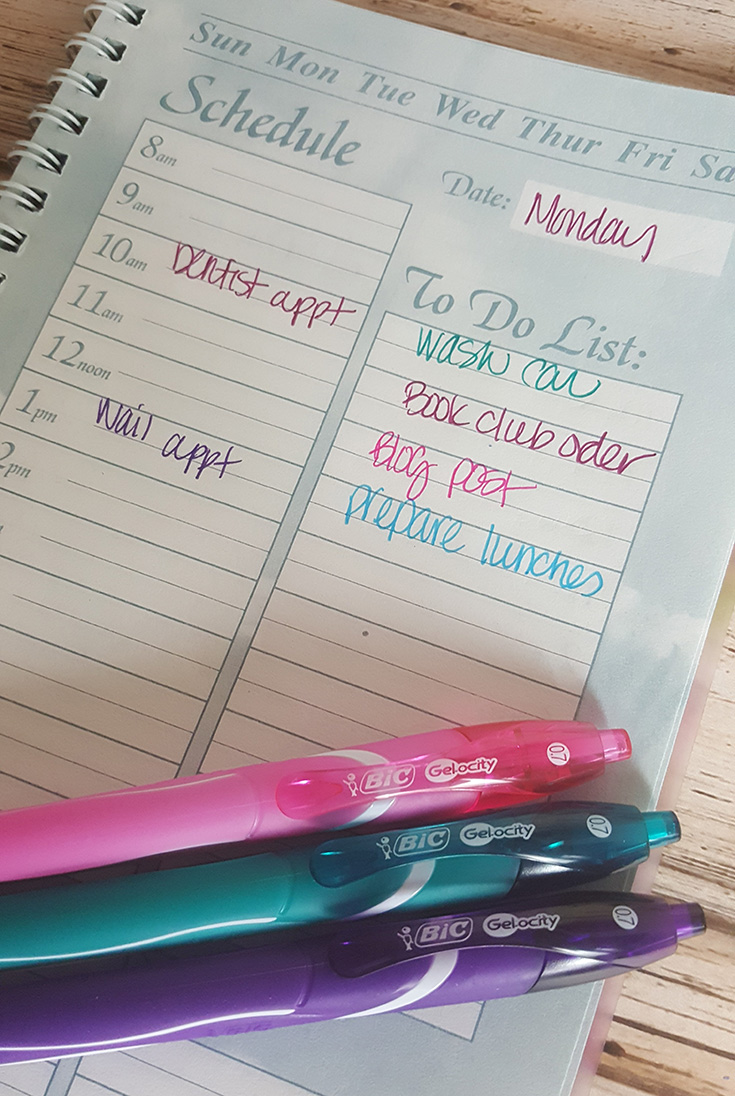 Sun Mon Tue Wed Thur Fri Sa
Schedule
Date: Monday
8am
9am
10am Dentist appt
11am
12noon
1pm Nail appt
2pm
To Do List:
wash car
Book club oder
Blog post
prepare lunches
BIC Gel-ocity 0.7
BIC Gel-ocity 0.7
BIC Gel-ocity 0.7